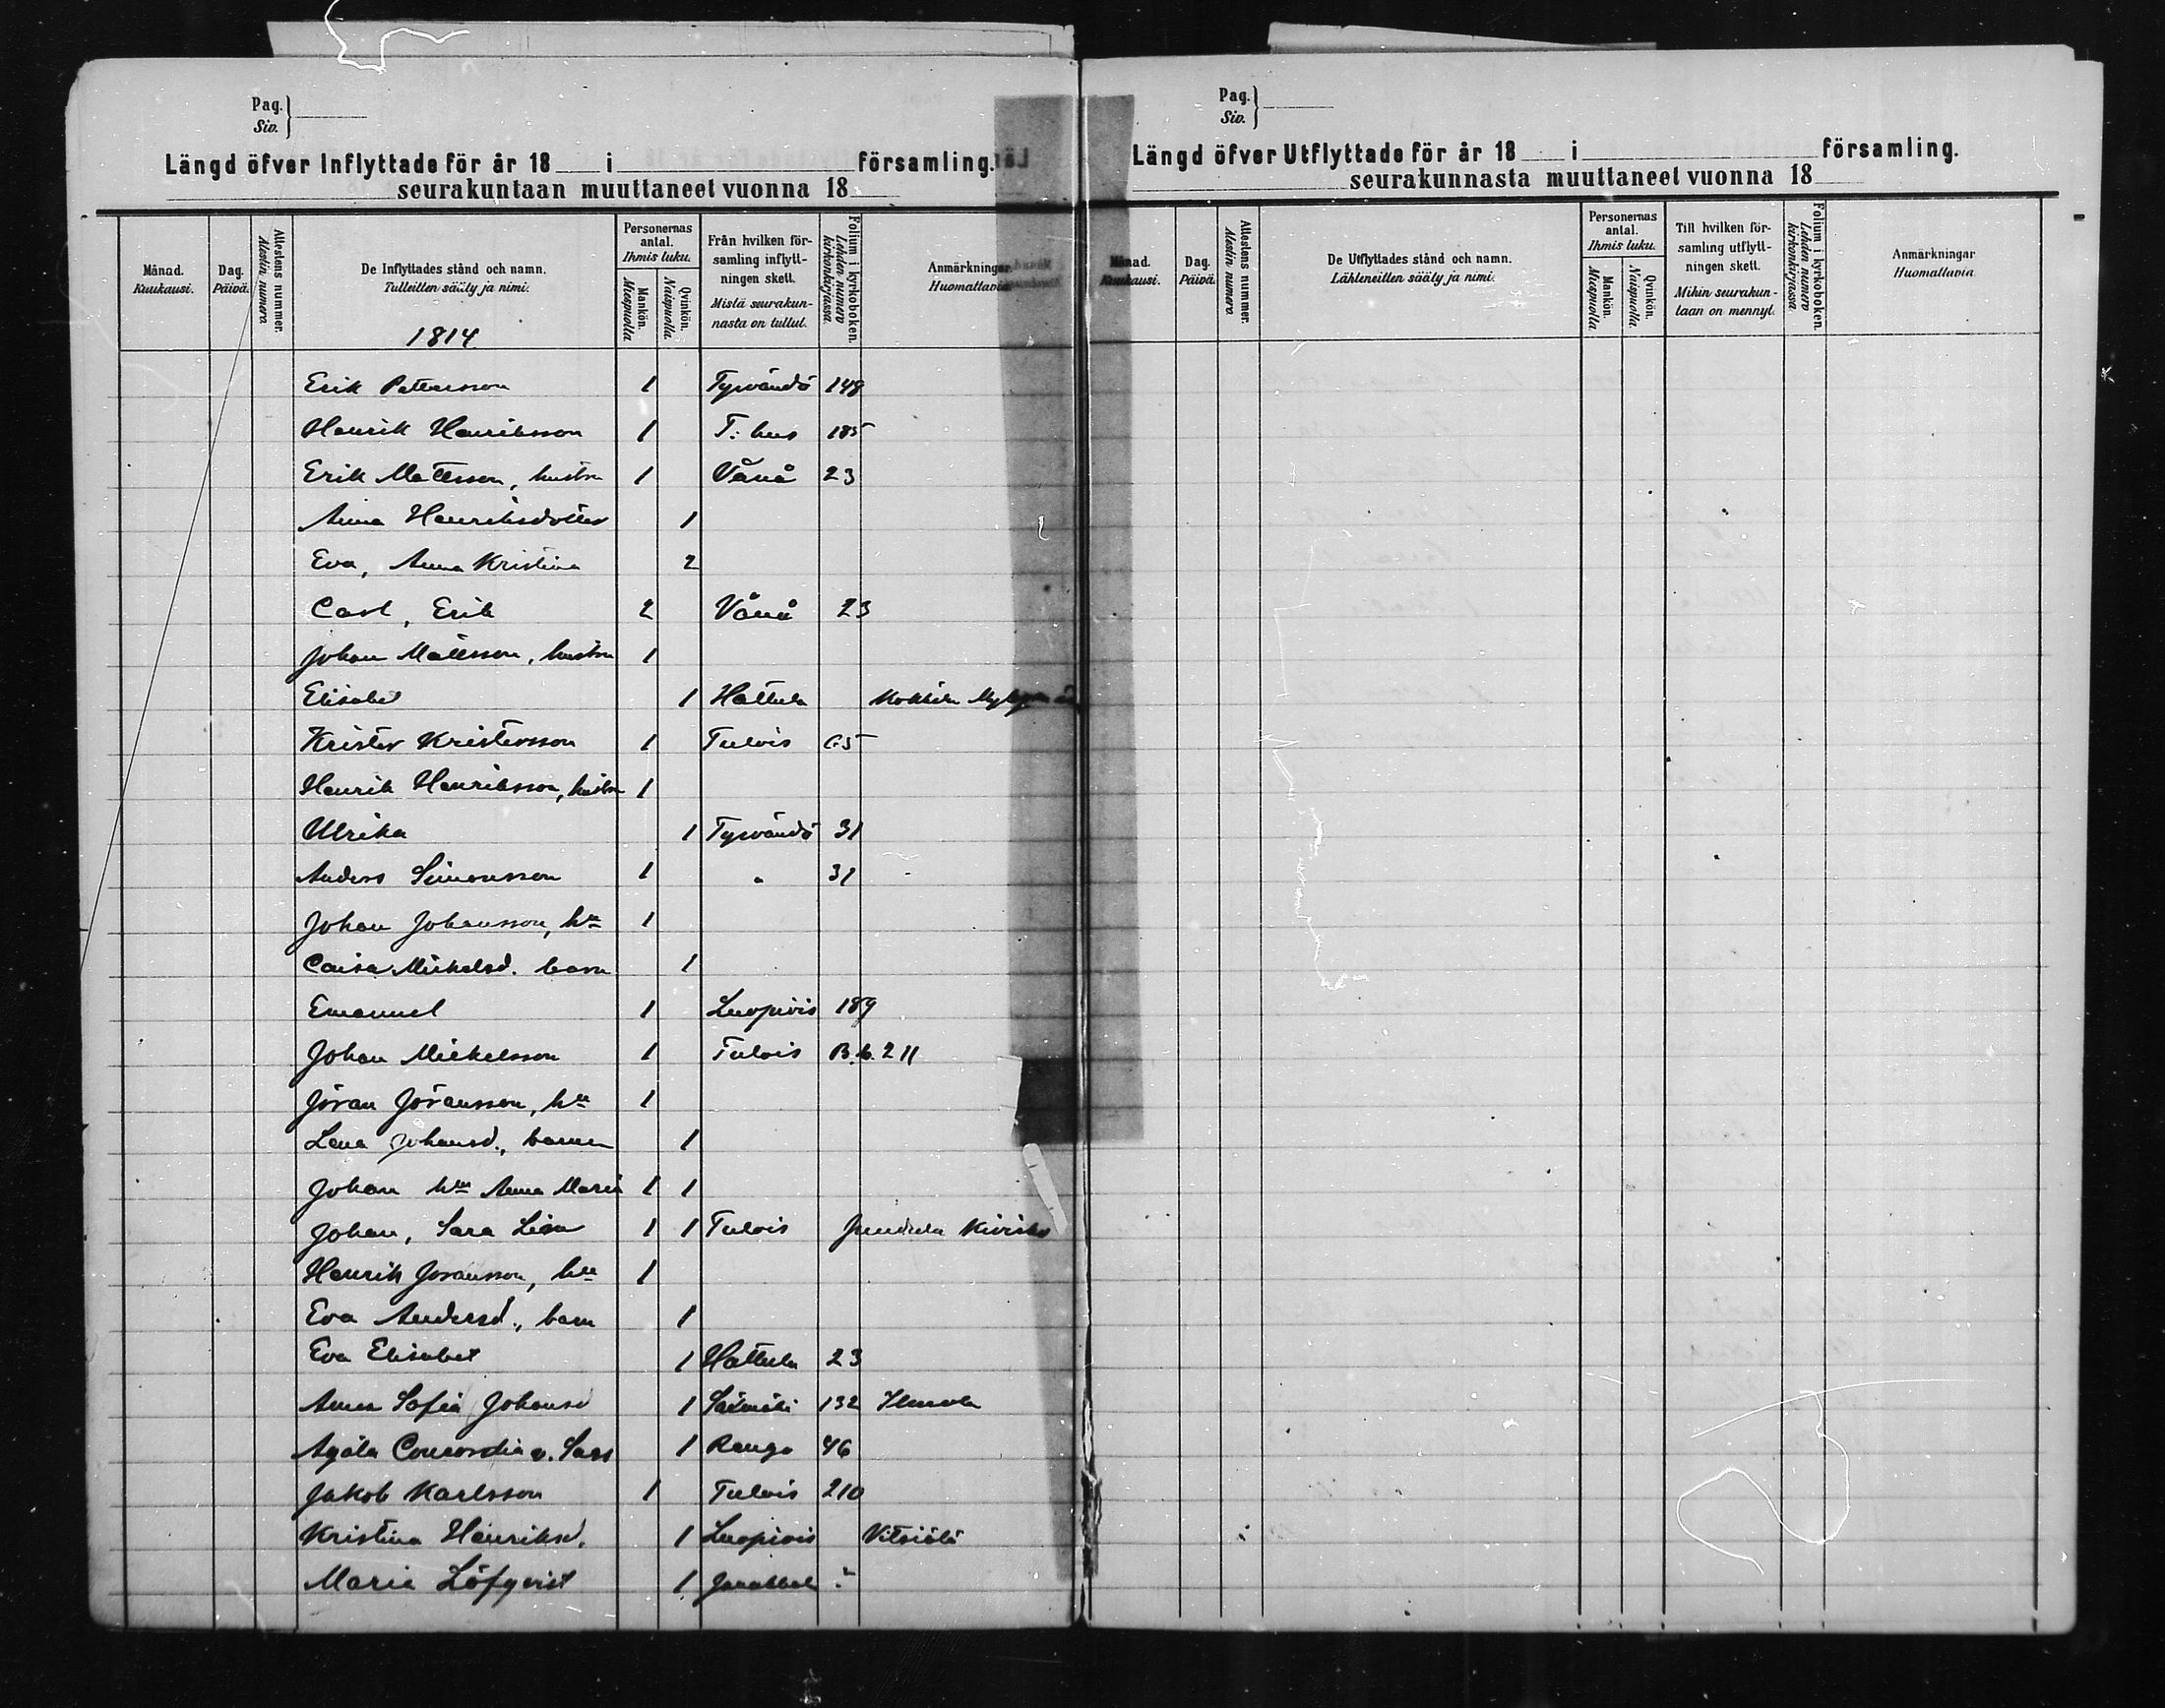 Pag.
Siv.
Längd öfver Inflyttade för år 18 i församling.
seurakuntaan muuttaneet vuonna 18
Månad.
Kuukausi.
Dag.
Päivä.
Attestens nummer.
Atestin numero
De Inflyttades stånd och namn.
Tulleitten sääty ja nimi.
1814
Personernas
antal.
Ihmis luku.
Mankön.
Miespuolia
Qvinkön.
Naispuolia.
Från hvilken för-
samling inflytt-
ningen skett.
Mistä seurakun-
nasta on tullut.
Folium i kyrkoboken.
Lehden numero
kirkonkirjassa.
Anmärkningar
Huomattavia
Erik Pettersson 1 Tyrvändö 148
Henrik Henriksson 1 T:hus 185
Erik Mattsson, hustru 1 Vånå 23
Anna Henriksdotter 1
Eva, Anna Kristina 2
Carl, Erik 2 Vånå 23
Johan Mattsson, hustru 1
Elisabet 1 Hattula
Krister Kristersson 1 Tulois 65
Henrik Henriksson, hustru 1
Ulrika 1 Tyrvändö 31
Anders Simonsson 1 " 31
Johan Johansson, hn 1
Caisa Mickelsd. barn 1
Emanuel 1 Luopiois 189
Johan Mickelsson 1 Tulois B.b. 211
Jöran Jöransson, hn 1
Lena Johansd., barnen 1
Johan hn Anna Maria 1 1
Johan, Sara Lisa 1 1 Tulois
Henrik Joransson, hn 1
Eva Andersd., barn 1
Eva Elisabet 1 Hattula 23
Anna Sofia Johansd 1 Säämäki 132
Concordia v. 1 Rengo 46
Jakob Karlsson 1 Tulois 210
Kristina Henriksd. 1 Luopiois Vitsiälä
Maria Löfqvist 1 Janakkala ?
Pag.
Siv.
Längd öfver Utflyttade för år 18 i församling.
seurakunnasta muuttaneet vuonna 18
Månad.
Kuukausi.
Dag.
Päivä.
Attestens nummer.
Atestin numero
De Utflyttades stånd och namn.
Lähteneitten sääty ja nimi.
Personernas
antal.
Ihmis luku.
Mankön.
Miespuolia
Qvinkön.
Naispuolia.
Till hvilken för-
samling utflytt-
ningen skett.
Mihin seurakun-
taan on mennyt.
Folium i kyrkoboken.
Lehden numero
kirkonkirjassa.
Anmärkningar
Huomattavia